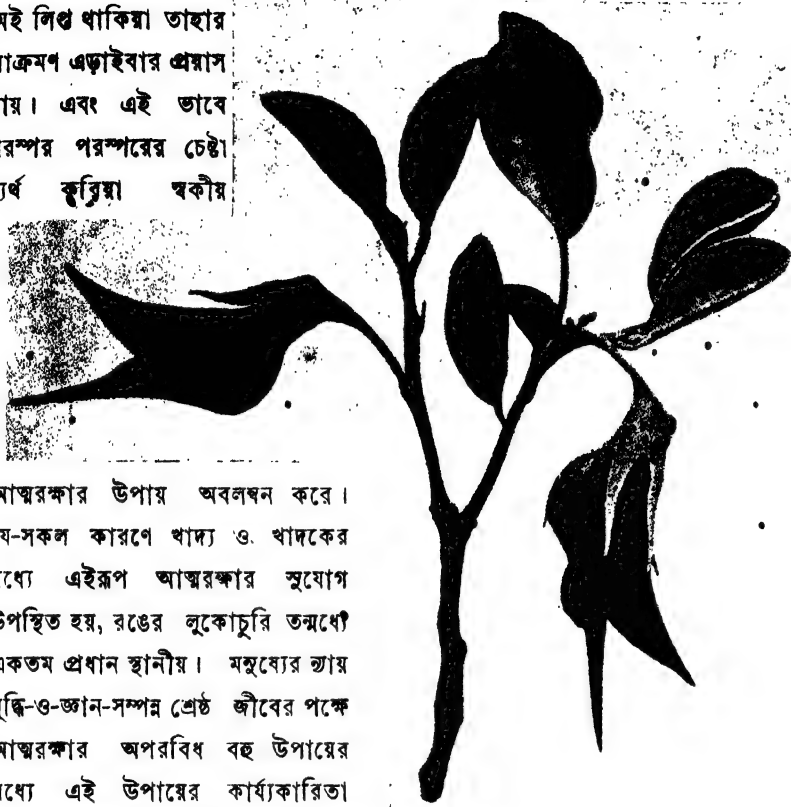 লিপ্ত থাকিয়া তাহার
এড়াইবার প্রয়াস
এবং এই ভাবে
পরস্পরের চেষ্টা
করিয়া স্বকীয়
আত্মরক্ষার উপায় অবলম্বন করে।
যে-সকল কারণে খাদ্য ও খাদকের
মধ্যে এইরূপ আত্মরক্ষার সুযোগ
উপস্থিত হয়, রঙের লুকোচুরি তন্মধ্যে
একতম প্রধান স্থানীয়। মনুষ্যের ন্যায়
বুদ্ধি-ও-জ্ঞান-সম্পন্ন শ্রেষ্ঠ জীবের পক্ষে
আত্মরক্ষার অপরবিধ বহু উপায়ের
মধ্যে এই উপায়ের কার্য্যকারিতা